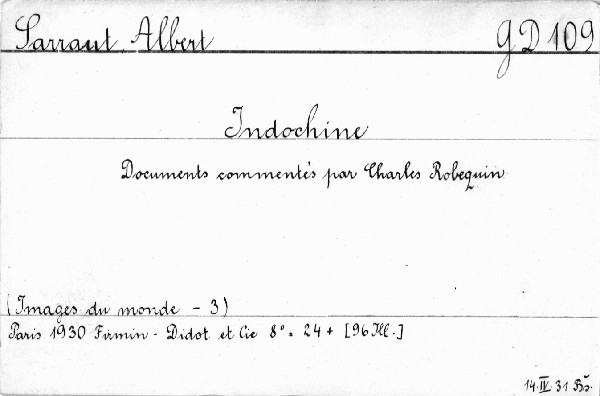 Sarraut, Albert GD 109
Indochine
Documents commentés par Charles Robequin
(Images du monde - 3)
Paris 1930 Firmin - Didot et Cie 8° = 24 + [96 Ill.]
14.IV.31 Bš.